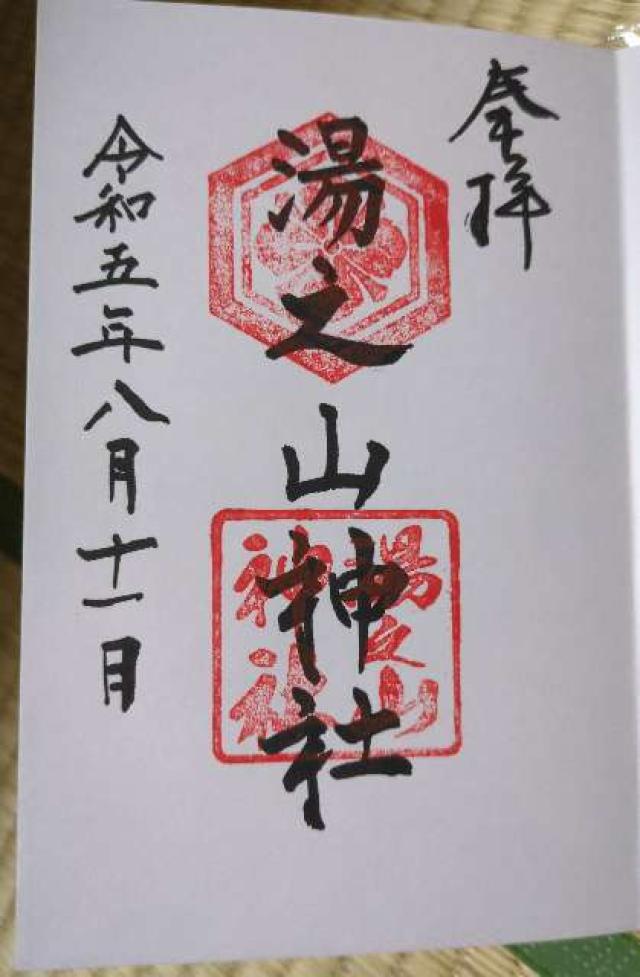 奉拝
湯之山神社
湯之山
神社
令和五年八月十一日